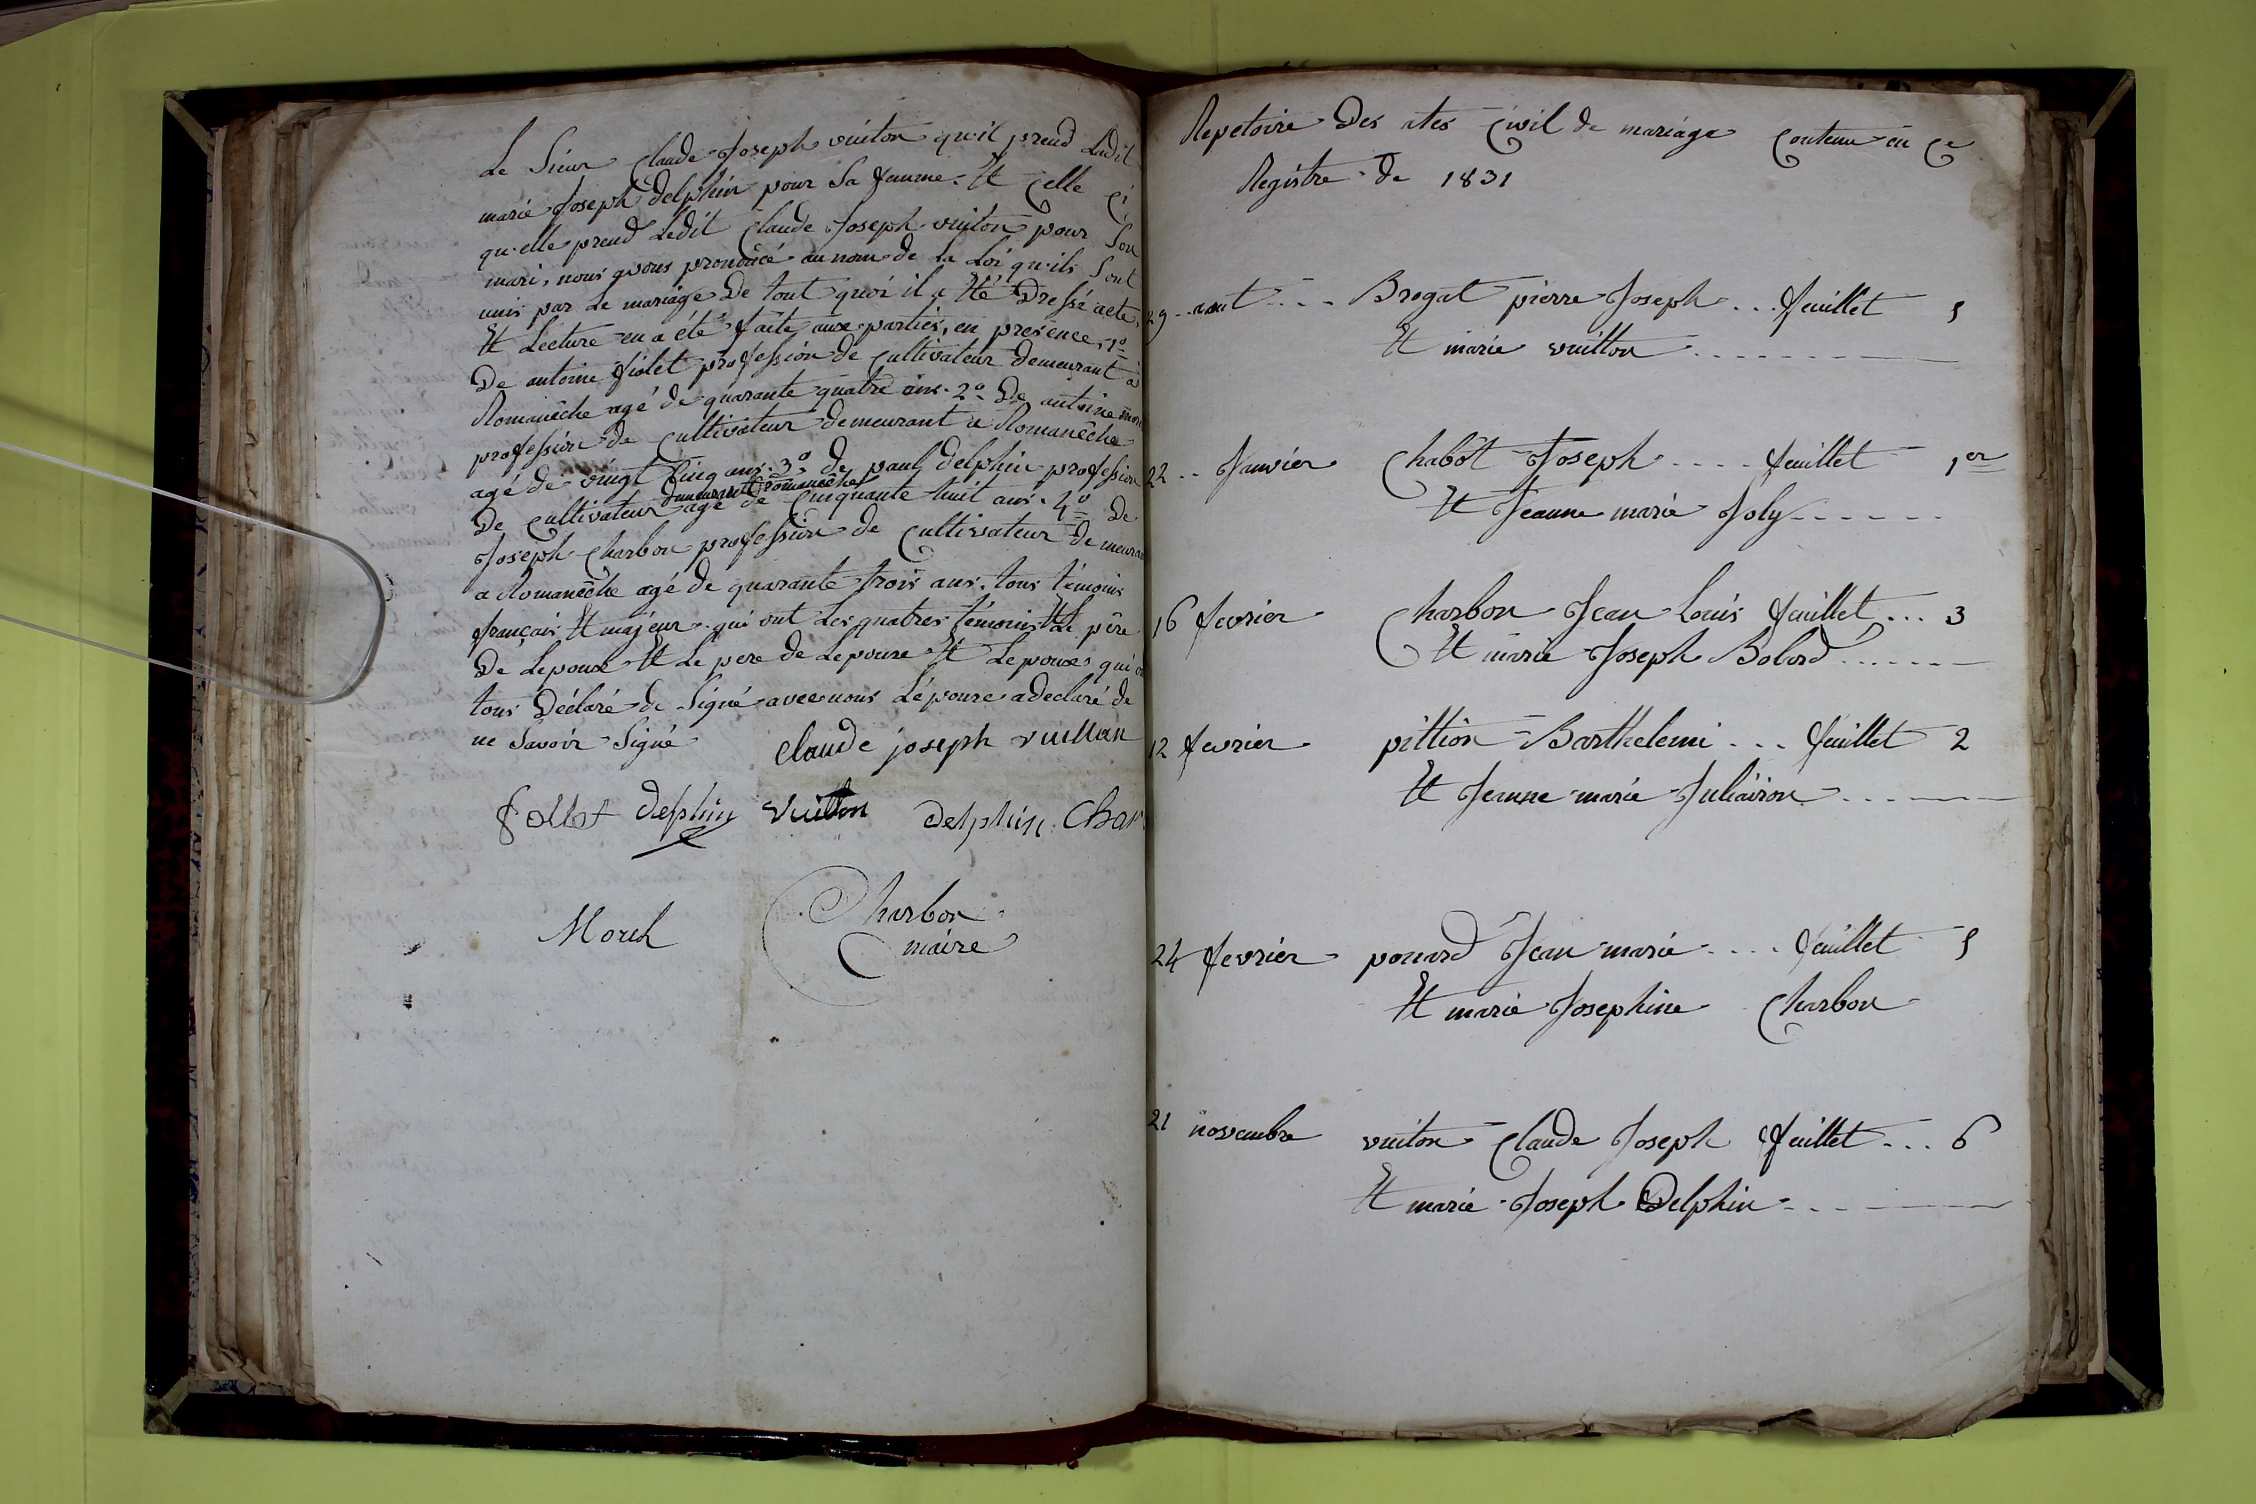 Le Sieur Claude Joseph vuiton qu'il prend Ladit
marie Joseph delphin pour Sa femme. Et Celle Ci
qu'elle prend Ledit Claude Joseph vuiton pour Son
mari, nous avons prononcé au nom de la Loi qu'ils Sont
unis par Le mariage De tout quoi il a Eté Dressé acte,
Et Lecture en a été faite aux parties, en presence, 1º
De antoine folet profession de Cultivateur demeurant à
Romanêche agé de quarante quatre ans. 2º De antoine
profession de Cultivateur demeurant a Romanêche
agé de vingt Cinq ans. 3º de paul delphin profession
demeurant a romanêche
De Cultivateur agé de Cinquante huit ans. 4º De
Joseph Charbon profession de Cultivateur demeuran
a Romanêche agé de quarante trois ans. tous témoins
français Et majeur qui ont Les quatres témoins Et Le père
De Lepoux Et Le pere de Lepouse Et Lepoux qui
tous Déclaré de Signé avec nous Lépouse a declaré de
ne Savoir Signé
Claude joseph vuitton
folet delphin vuitton delphin Char
Morel
Charbon
maire
Repetoire Des ates Civil de mariage Contenu en Ce
Registre de 1831
29 aout Brogat pierre Joseph ... feuillet 5
Et marie vuitton
22 .. Janvier Chabot Joseph .... feuillet 1er
Et Jeanne marie Joly
16 fevrier Charbon Jean Louis feuillet ... 3
Et marie Joseph Bobard
12 fevrier pittion Barthelemi ... feuillet 2
Et Jeanne marie Juliairon
24 fevrier ponard Jean marie .... feuillet 5
Et marie Josephine Charbon
21 novembre vuiton Claude Joseph feuillet ... 6
Et marie Joseph Delphin